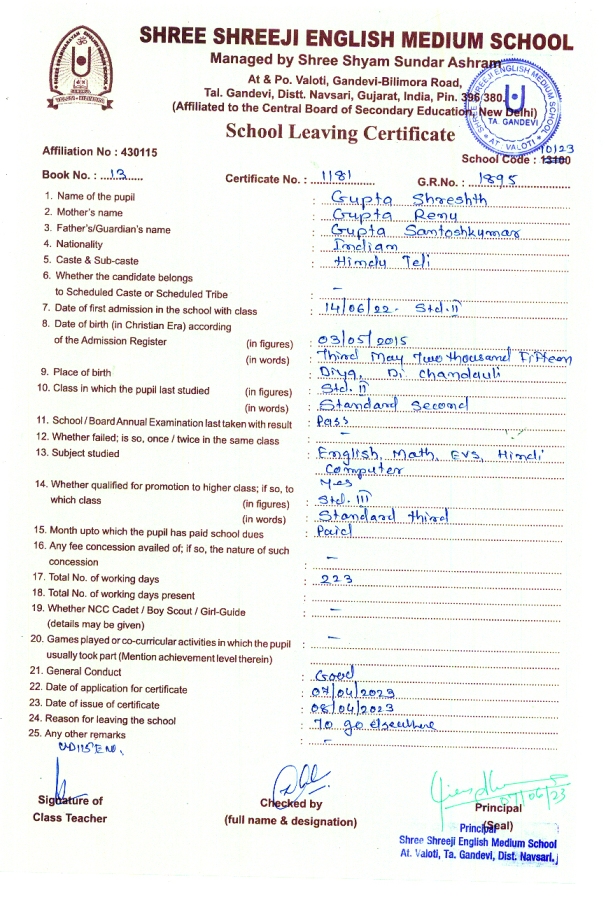 SHREE SHREEJI ENGLISH MEDIUM SCHOOL
Managed by Shree Shyam Sundar Ashram
At & Po. Valoti, Gandevi-Bilimora Road,
Tal. Gandevi, Distt. Navsari, Gujarat, India, Pin. 396 380.
(Affiliated to the Central Board of Secondary Education, New Delhi)
SHREE SHREEJI ENGLISH MEDIUM SCHOOL
TA. GANDEVI
AT. VALOTI
School Leaving Certificate
Affiliation No : 430115
10123
School Code : 13100
Book No. : 13
Certificate No. : 1181
G.R.No. : 1895
1. Name of the pupil : Gupta Shreshth
2. Mother's name : Gupta Renu
3. Father's/Guardian's name : Gupta Santoshkumar
4. Nationality : Indian
5. Caste & Sub-caste : Hindu Teli
6. Whether the candidate belongs
to Scheduled Caste or Scheduled Tribe : –
7. Date of first admission in the school with class : 14/06/22- Std.II
8. Date of birth (in Christian Era) according
of the Admission Register (in figures) : 03/05/2015
(in words) : Third May Two thousand Fifteen
9. Place of birth : Diya, Di Chandauli
10. Class in which the pupil last studied (in figures) : Std. II
(in words) : Standard Second
11. School / Board Annual Examination last taken with result : Pass
12. Whether failed; is so, once / twice in the same class : –
13. Subject studied : English, Math, EVS, Hindi
Computer
14. Whether qualified for promotion to higher class; if so, to : Yes
which class (in figures) : Std. III
(in words) : Standard third
15. Month upto which the pupil has paid school dues : Paid
16. Any fee concession availed of; if so, the nature of such
concession : –
17. Total No. of working days : 223
18. Total No. of working days present :
19. Whether NCC Cadet / Boy Scout / Girl-Guide : –
(details may be given)
20. Games played or co-curricular activities in which the pupil : –
usually took part (Mention achievement level therein)
21. General Conduct : Good
22. Date of application for certificate : 07/04/2023
23. Date of issue of certificate : 08/04/2023
24. Reason for leaving the school : To go elsewhere
25. Any other remarks : –
Signature of
Class Teacher
Checked by
(full name & designation)
07/06/23
Principal
(Seal)
Principal
Shree Shreeji English Medium School
At. Valoti, Ta. Gandevi, Dist. Navsari.